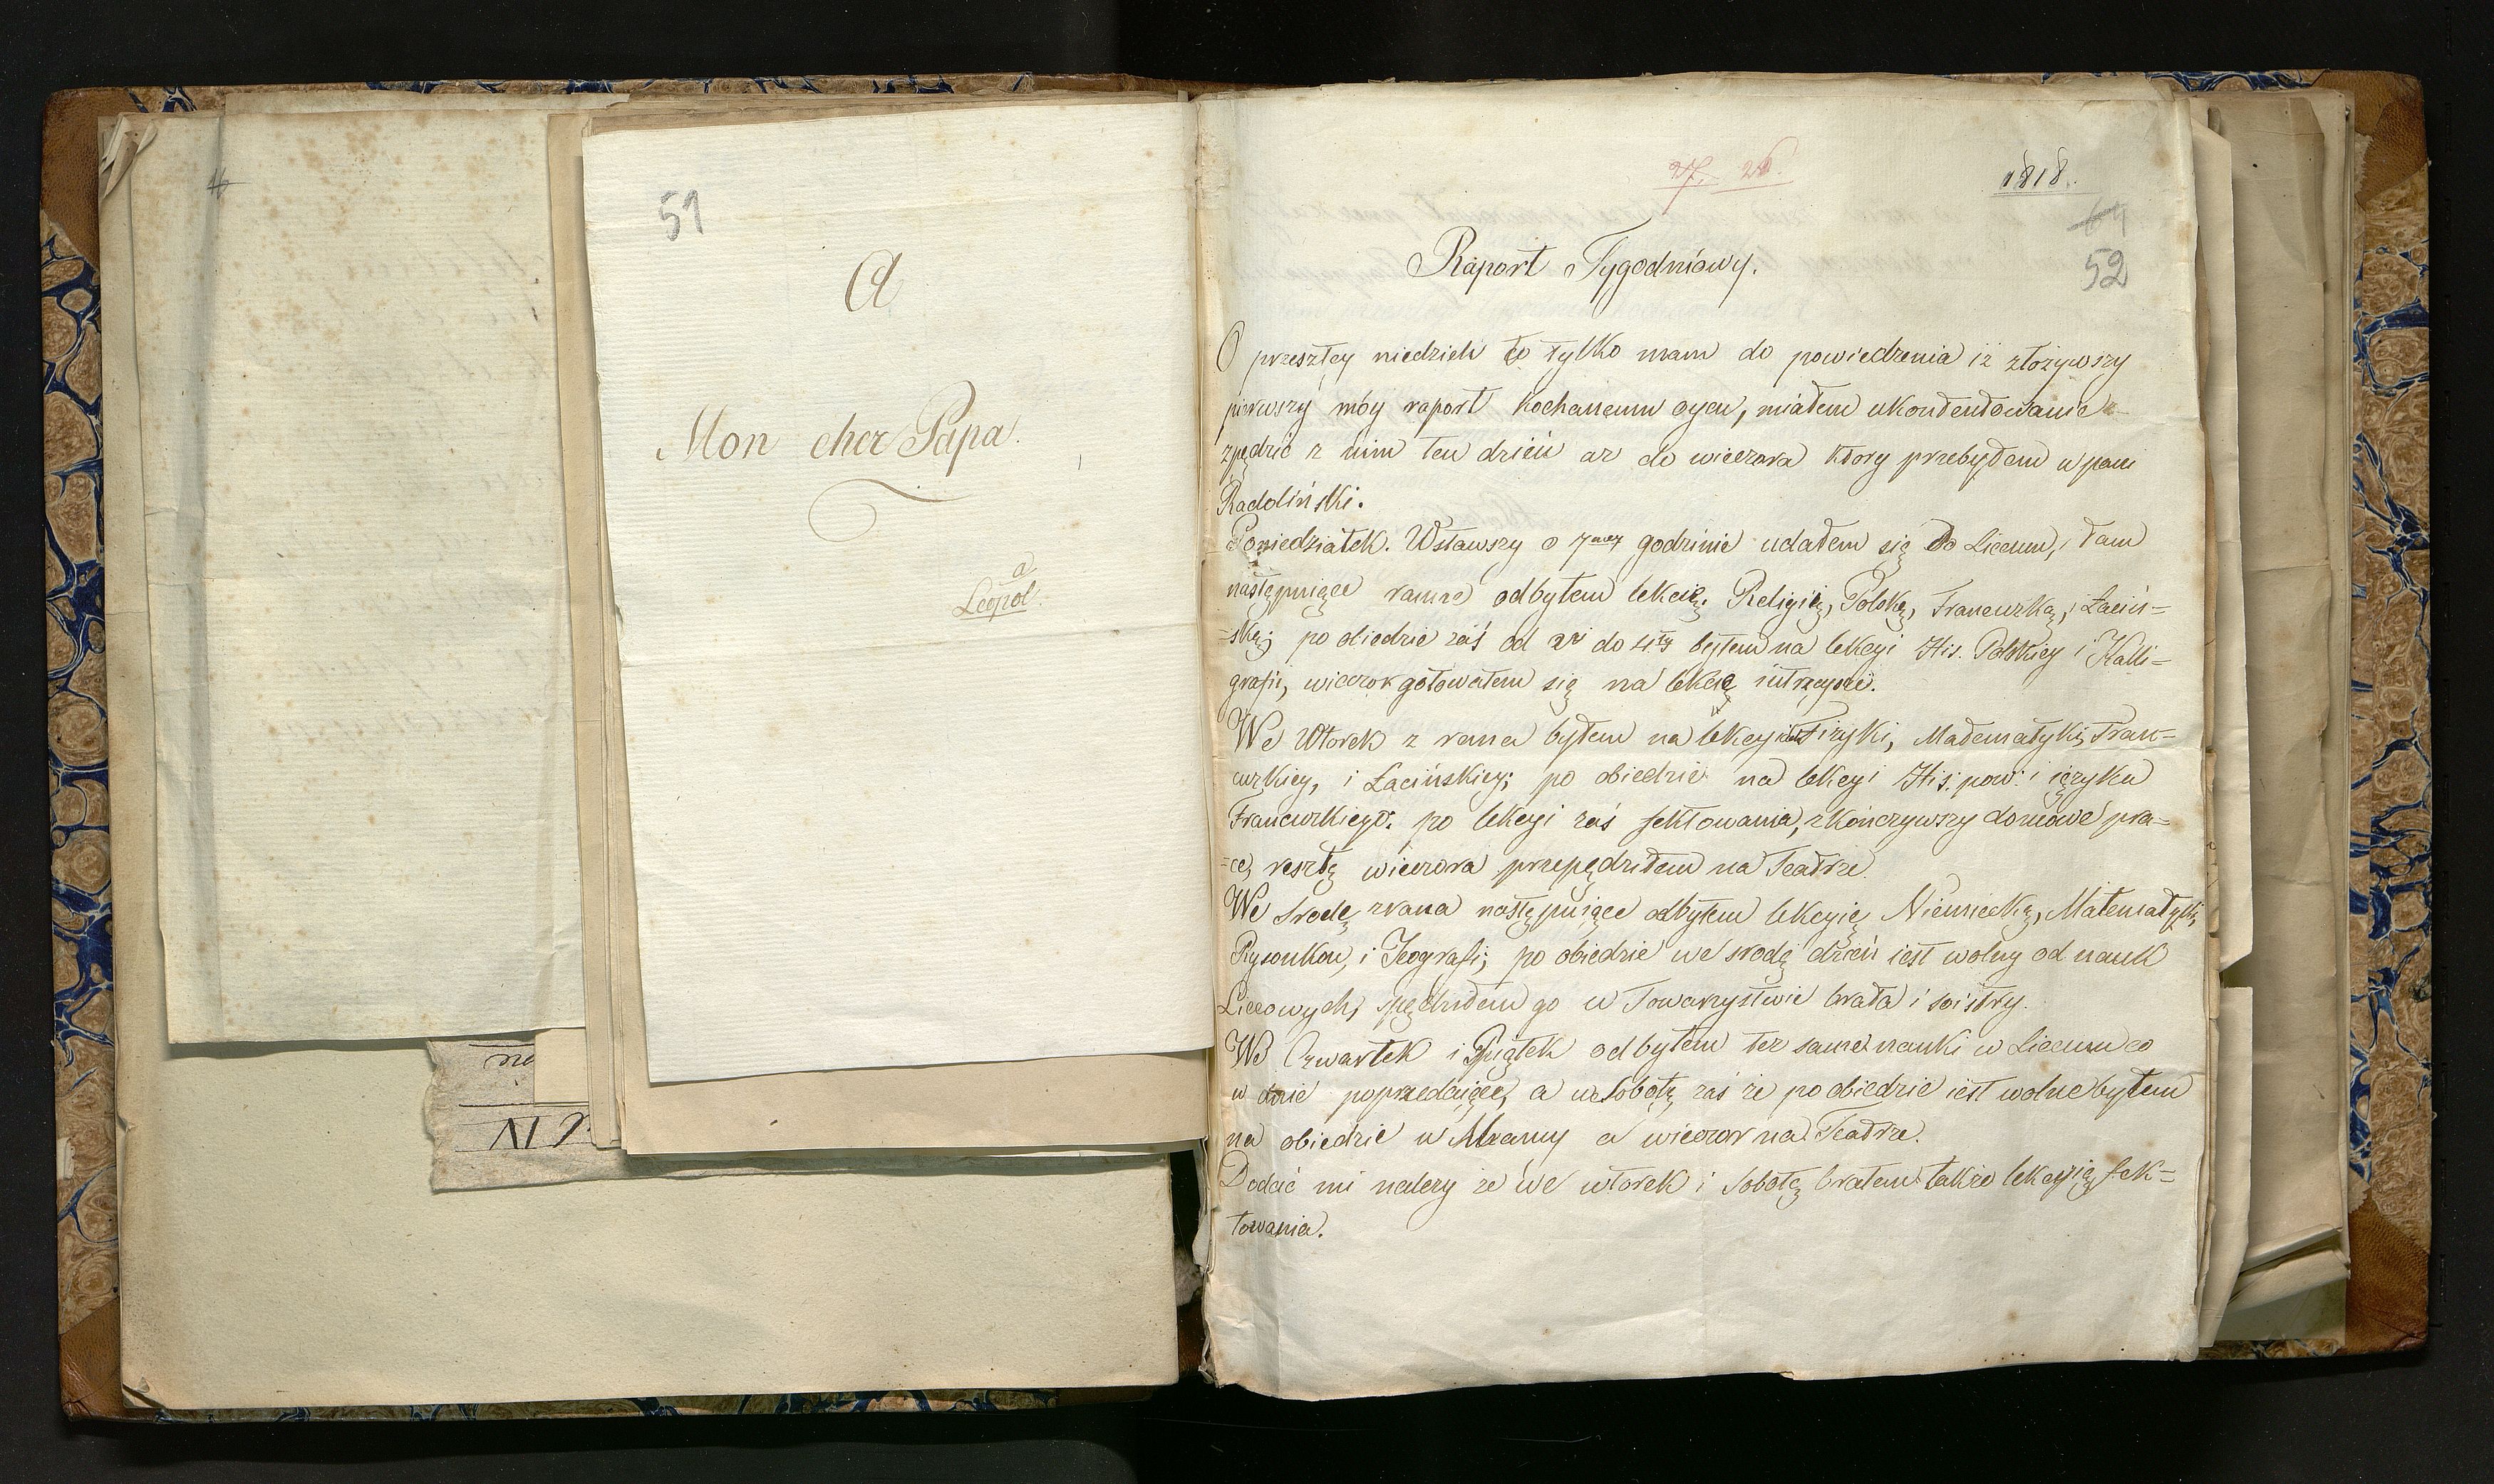 51
A
Mon cher Papa.
a
Leopol.
27. 26.
1818.
64
52
Raport Tygodniowy.
O przeszłey niedzieli to tylko mam do powiedzenia iż złożywszy
pierwszy móy raport kochanemu oycu, miałem ukontentowanie
zpędzić z nim ten dzień az do wieczora który przebyłem u pani
Radoliński.
Poniedziałek. Wstawszy o 7mey godzinie udałem się do Liceum, tam
następuiące ranne odbyłem lekcie, Religią, Polską, Francuzką, Łaciń=
=ską; po obiedzie zaś od 2i do 4.ty byłem na lekcyi His. Polskiey i Kalli=
grafii, wieczor gotowałem się na lekcie iutrzeysze.
We Wtorek z rana byłem na lekcyi Fizyki, Madematyki, Fran=
cuzkiey, i Łacińskiey; po obiedzie na lekcyi His: pow: i ięzyka
Francuzkiego. po lekcyi zaś fektowania, zkończywszy domowe pra=
=ce, resztę wieczora przepędziłem na Teatrze.
We Srodę zrana następuiące odbyłem lekcyie Niemiecką, Matematyki,
Rysunkow, i Jeografi; po obiedzie we srodę dzień iest wolny od nauk
Liceowych, spędziłem go w Towarzystwie brata i soistry.
We Czwartek i Piątek odbyłem tez same nauki w Liceum co
w dnie poprzedaiące, a w Sobotę zaś że po obiedzie iest wolne byłem
na obiedzie u Mamy a wieczor na Teatrze.
Dodać mi nalezy ze we wtorek i Sobotę brałem takze lekcyię fek=
towania.
IV